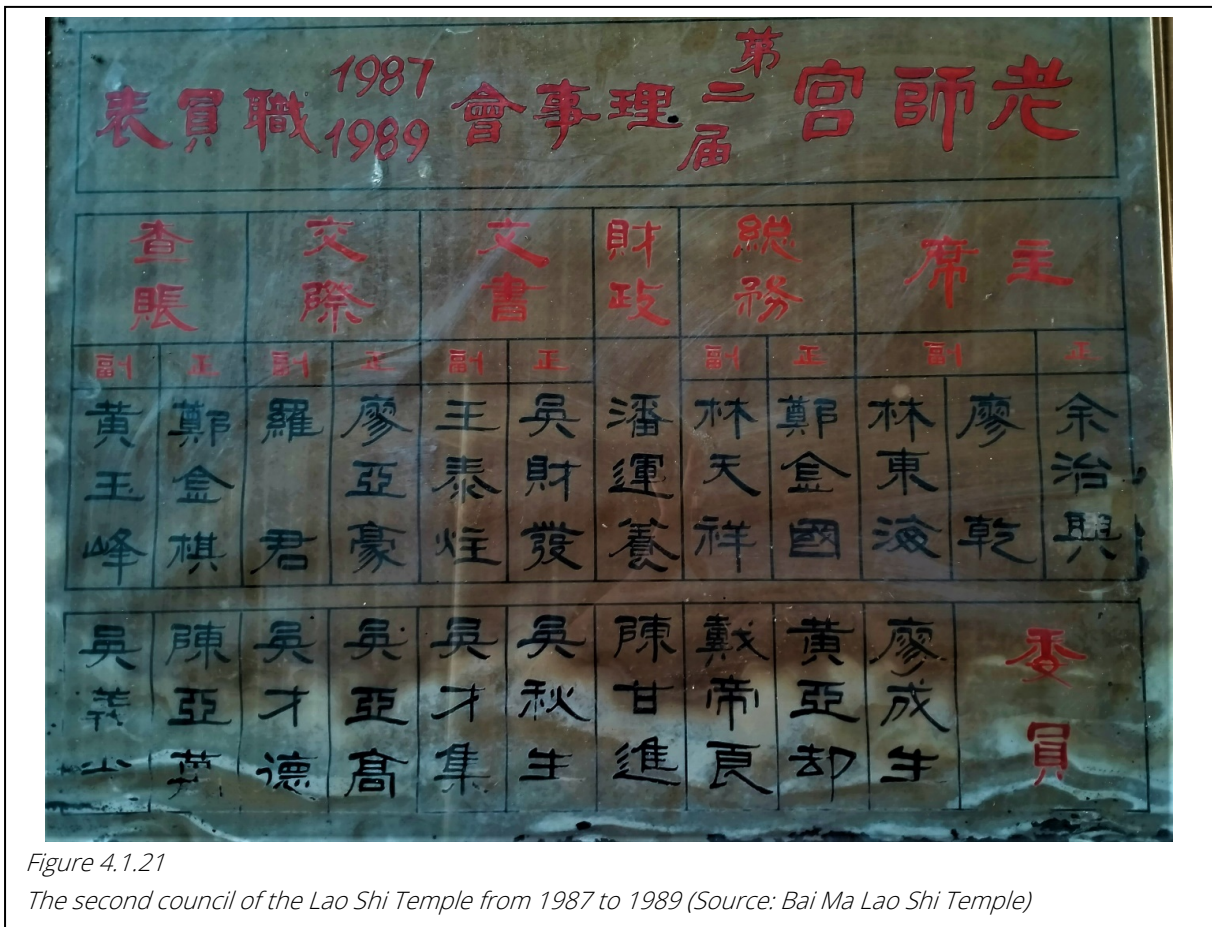 老師宮第二届理事會1987 1989職員表
主席
総務
財政
文書
交際
查賬
正
副
正
副
正
副
正
副
正
副
余治興
廖乾
林東海
鄭金國
林天祥
潘運養
吳財發
王泰炷
廖亞豪
羅君
鄭金棋
黃玉峰
委員
廖成生
黃亞却
戴帝良
陳甘進
吳秋生
吳才集
吳亞髙
吳才德
陳亞
吳義
Figure 4.1.21
The second council of the Lao Shi Temple from 1987 to 1989 (Source: Bai Ma Lao Shi Temple)